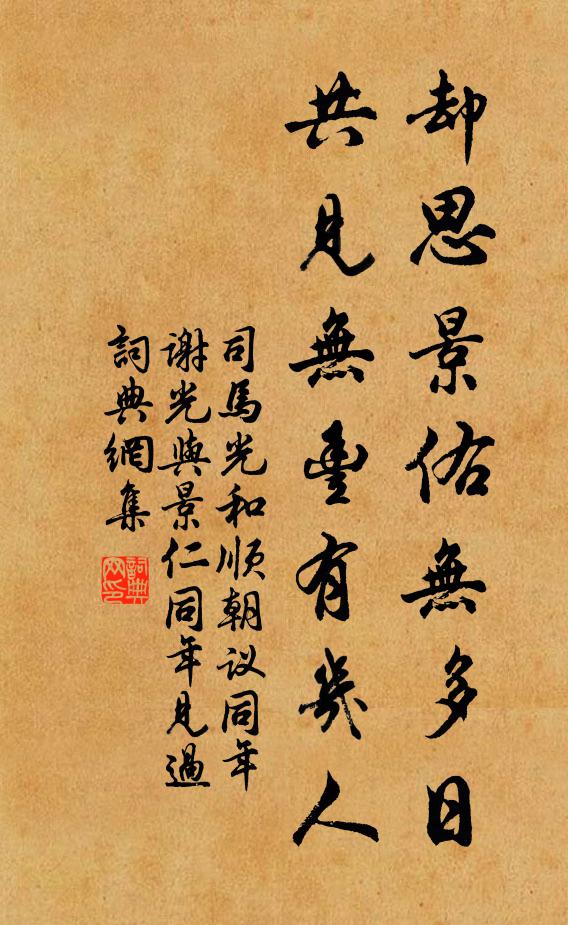 却思景佑無多日
共見無豐有幾人
司馬光和順朝议同年
謝光與景仁同年見過
詞典網集
詞典網印